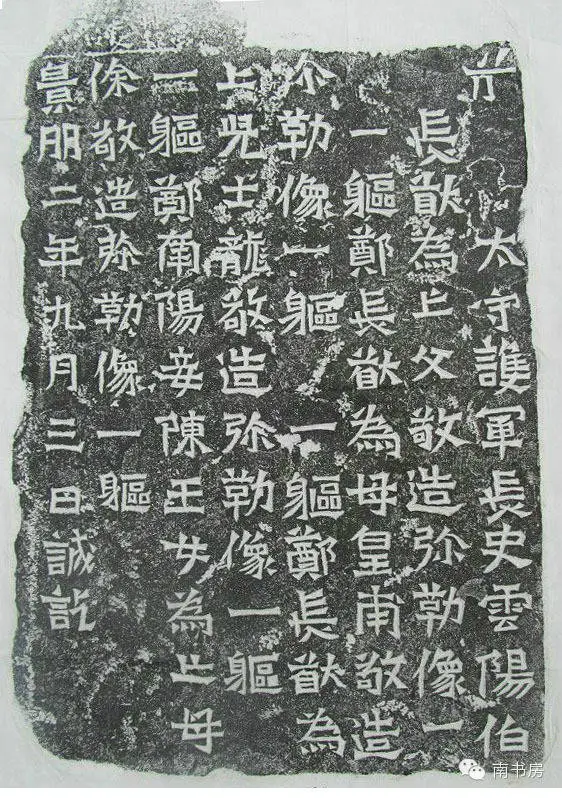 太守護軍長史雲陽伯
長猷為亡父敬造弥勒像一
一軀鄭長猷為母皇甫敬造
弥勒像一軀一軀鄭長猷為
亡兒士龍敬造弥勒像一軀
一軀鄭南陽妾陳玉女為亡母
徐敬造弥勒像一軀
景明二年九月三日誠訖
南书房